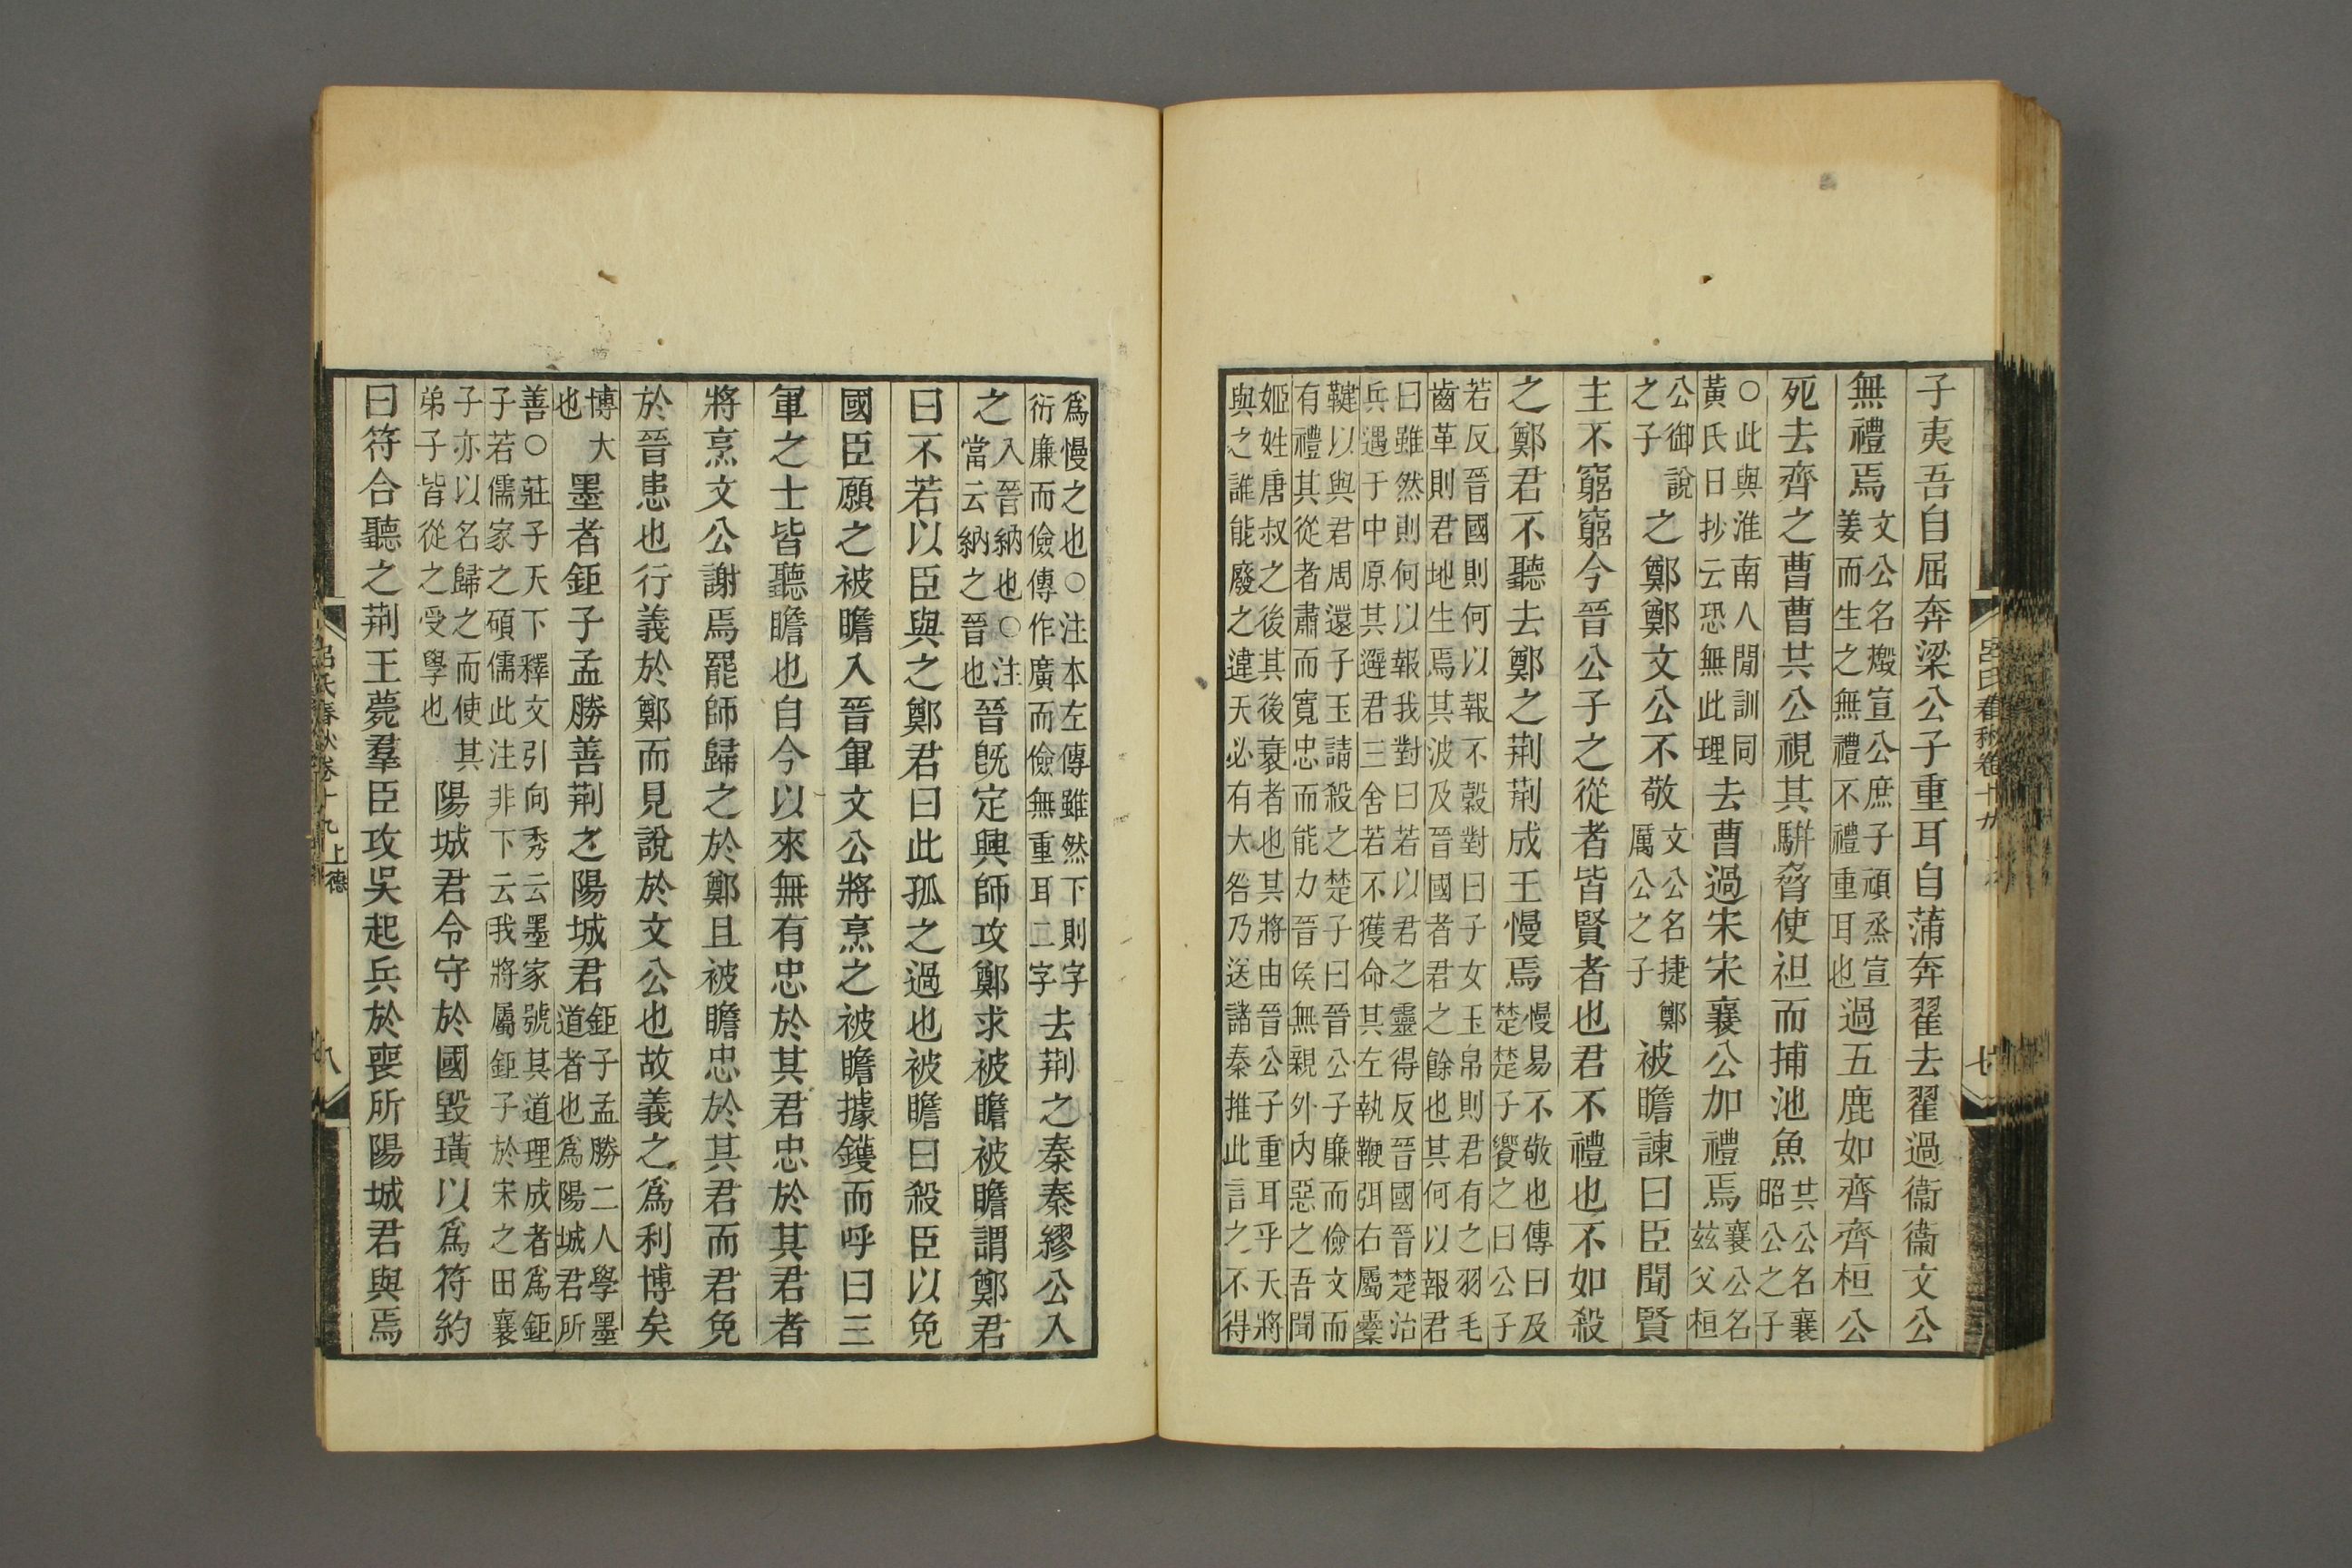 子夷吾自屈奔梁公子重耳自蒲奔翟去翟過衞衞文公
無禮焉文公名燬宣公庶子頑烝宣姜而生之無禮不禮重耳也過五鹿如齊齊桓公
死去齊之曹曹共公視其駢脅使袒而捕池魚共公名襄昭公之子
○此與淮南人閒訓同黃氏日抄云恐無此理去曹過宋宋襄公加禮焉襄公名茲父桓
公御說之子之鄭鄭文公不敬文公名捷鄭厲公之子被瞻諫曰臣聞賢
主不窮窮今晉公子之從者皆賢者也君不禮也不如殺
之鄭君不聽去鄭之荆荆成王慢焉慢易不敬也傳曰及楚楚子饗之曰公子
若反晉國則何以報不穀對曰子女玉帛則君有之羽毛齒革則君地生焉其波及晉國者君之餘也其何以報君
曰雖然則何以報我對曰若以君之靈得反晉國晉楚治兵遇于中原其避君三舍若不獲命其左執鞭弭右屬櫜
鞬以與君周還子玉請殺之楚子曰晉公子廉而儉文而有禮其從者肅而寬忠而能力晉侯無親外內惡之吾聞
姬姓唐叔之後其後衰者也其將由晉公子重耳乎天將與之誰能廢之違天必有大咎乃送諸秦推此言之不得
呂氏春秋卷十九
七
爲慢之也○注本左傳雖然下則字衍廉而儉傳作廣而儉無重耳二字去荆之秦秦繆公入
之入晉納也○注當云納之晉也晉旣定興師攻鄭求被瞻被瞻謂鄭君
曰不若以臣與之鄭君曰此孤之過也被瞻曰殺臣以免
國臣願之被瞻入晉軍文公將烹之被瞻據鑊而呼曰三
軍之士皆聽瞻也自今以來無有忠於其君忠於其君者
將烹文公謝焉罷師歸之於鄭且被瞻忠於其君而君免
於晉患也行義於鄭而見說於文公也故義之爲利博矣
博大也墨者鉅子孟勝善荆之陽城君鉅子孟勝二人學墨道者也爲陽城君所
善○莊子天下釋文引向秀云墨家號其道理成者爲鉅子若儒家之碩儒此注非下云我將屬鉅子於宋之田襄
子亦以名歸之而使其弟子皆從之受學也陽城君令守於國毀璜以爲符約
曰符合聽之荆王薨羣臣攻吳起兵於喪所陽城君與焉
呂氏春秋卷十九 上德
八